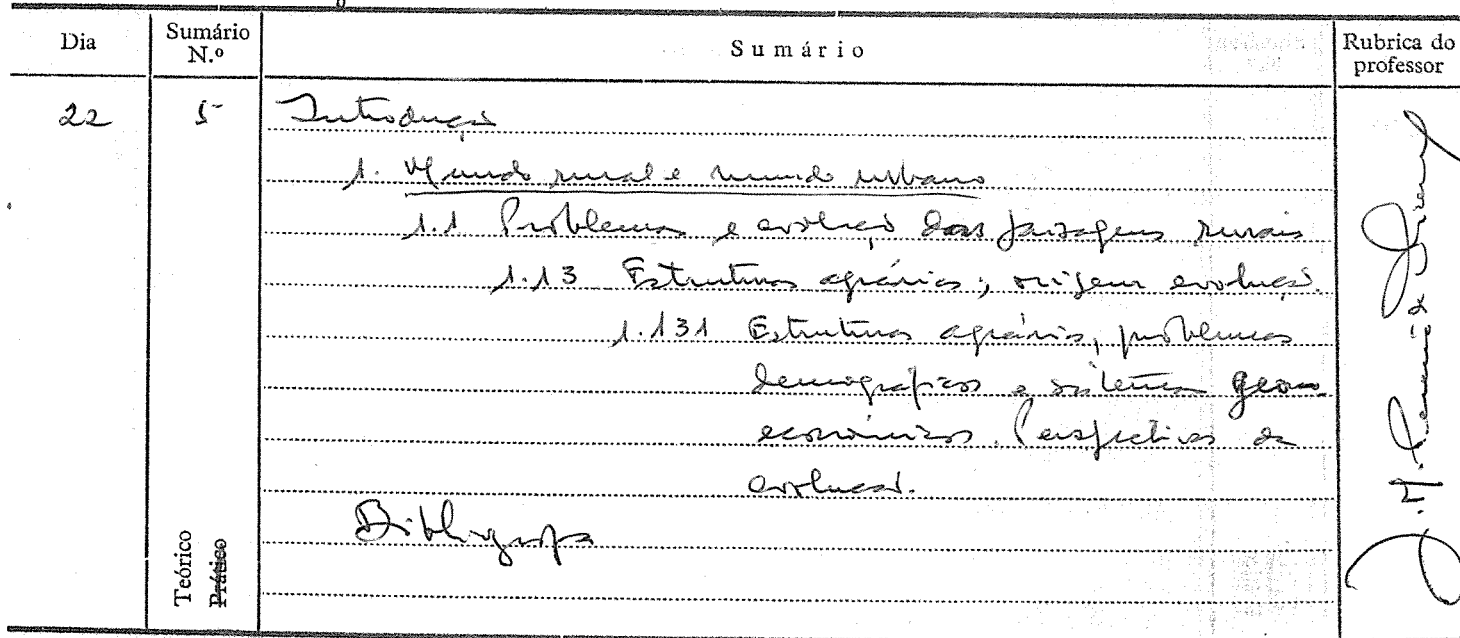 Dia
Sumário N.º
Sumário
Rubrica do professor
22
5
Introdução
1. Mundo rural e mundo urbano
1.1 Problemas e evolução das paisagens rurais
1.13 Estruturas agrárias; origem evolução.
1.131 Estruturas agrárias, problemas
demográficos e sistemas geo-
económicos. Perspectivas de
evolução.
Bibliografia
Teórico
Prático
J. M.